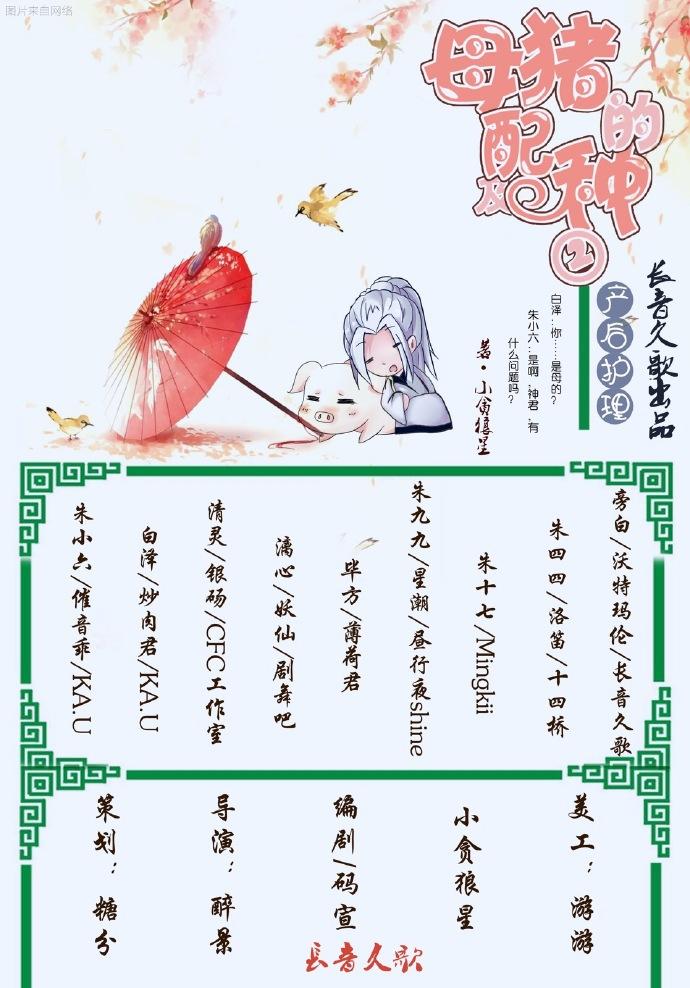 图片来自网络
母猪的
配种
及
2
产后护理
长音久歌出品
白泽：你……是母的？
朱小六：是啊，神君，有
什么问题吗？
著·小贪狼星
朱小六/催音乖/KA.U
白泽/炒肉君/KA.U
清灵/银砀/CFC工作室
漓心/妖仙/剧舞吧
毕方/薄荷君
朱九九/星潮/昼行夜shine
朱十七/Mingkii
朱四四/洛笛/十四桥
旁白/沃特玛伦/长音久歌
策划：糖分
导演：醉景
编剧/码宣
小贪狼星
美工：游游
长音久歌